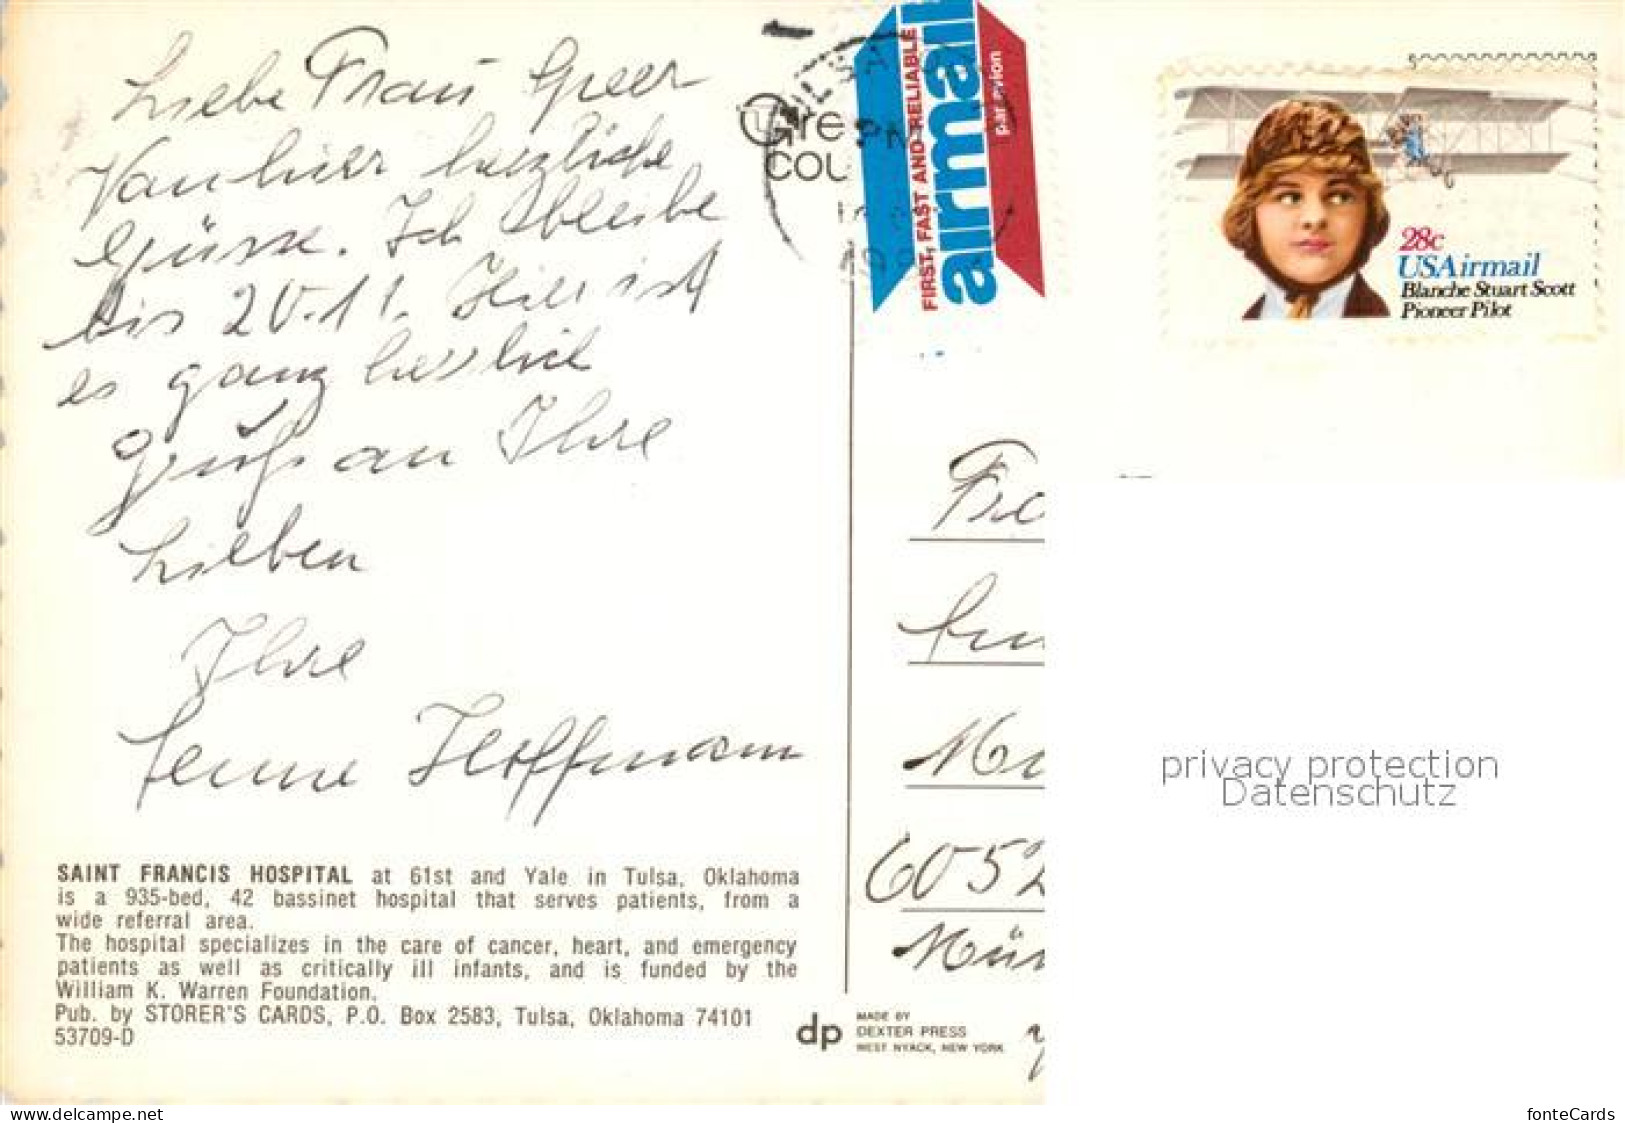 Liebe Frau Greer
Von hier herzliche
Grüsse. Ich bleibe
bis 20.11. Hier ist
es ganz herrlich
Gruß an Ihre
Lieben
Ihre
Hoffmann
SAINT FRANCIS HOSPITAL at 61st and Yale in Tulsa, Oklahoma
is a 935-bed, 42 bassinet hospital that serves patients, from a
wide referral area.
The hospital specializes in the care of cancer, heart, and emergency
patients as well as critically ill infants, and is funded by the
William K. Warren Foundation.
Pub. by STORER'S CARDS, P.O. Box 2583, Tulsa, Oklahoma 74101
53709-D
dp
MADE BY
DEXTER PRESS
WEST NYACK, NEW YORK
FIRST, FAST AND RELIABLE
airmail
par avion
PM
28c
USAirmail
Blanche Stuart Scott
Pioneer Pilot
6052
privacy protection
Datenschutz
www.delcampe.net
fonteCards